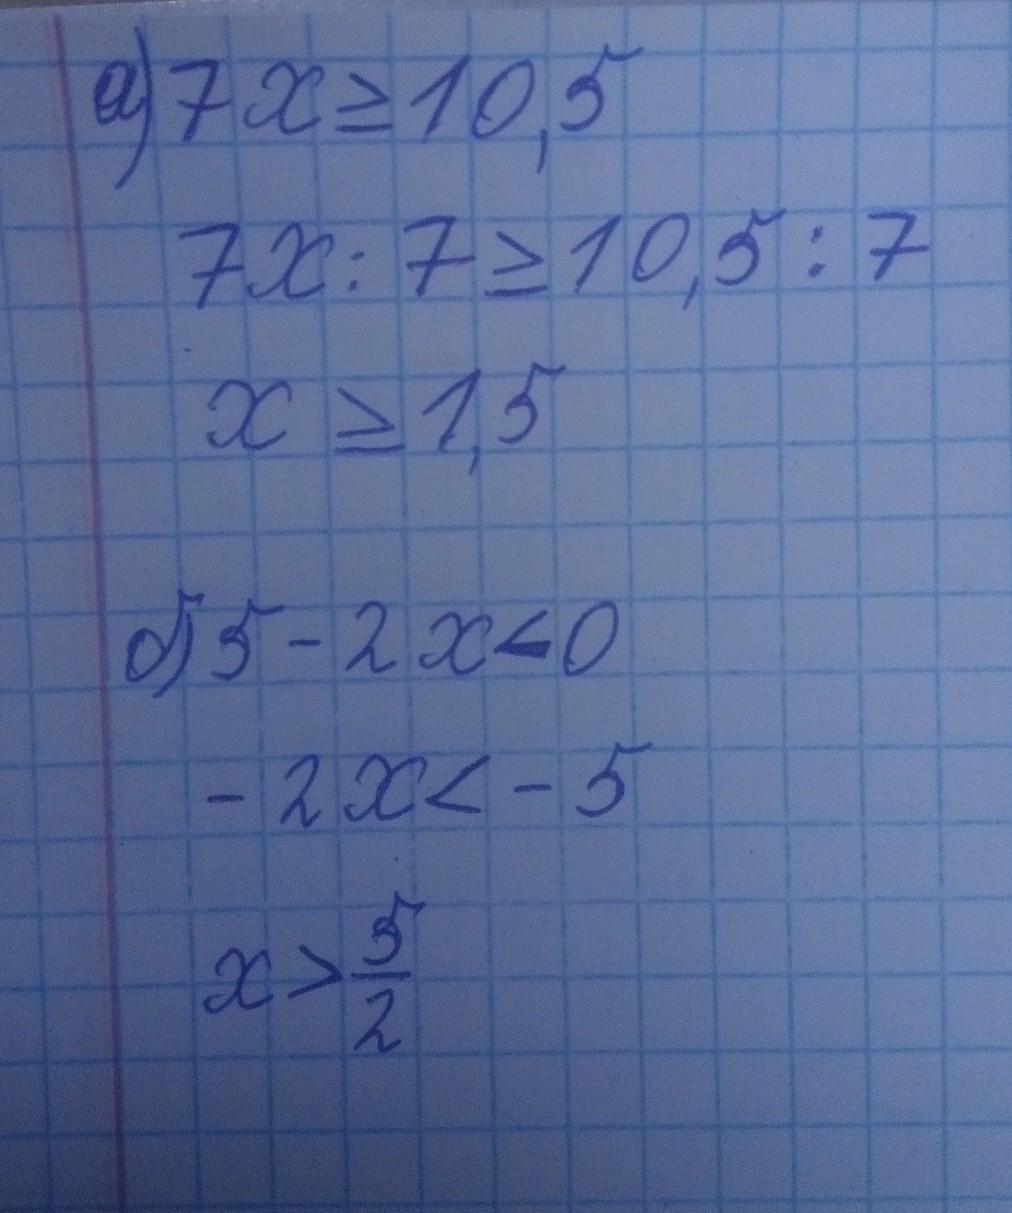 а) 7x ≥ 10,5
7x : 7 ≥ 10,5 : 7
x ≥ 1,5
б) 5 - 2x < 0
- 2x < - 5
x > 5/2